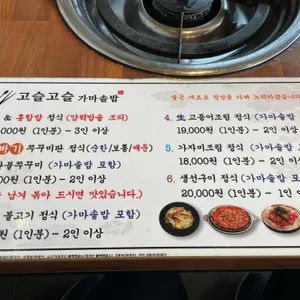 고슬고슬 가마솥밥
좋은 재료로 정성을 다해 노력하겠습니다.
& 홍합밥 정식 (압력밥솥 조리)
000원 (1인분) - 3인 이상
바기 쭈꾸미판 정식 (순한/보통/매운)
불쭈꾸미 (가마솥밥 포함)
남겨 볶아 드시면 맛있습니다.)
불고기 정식 (가마솥밥 포함)
원 (1인분) - 2인 이상
4. 生 고등어조림 정식 (가마솥밥
19,000원 (1인분) - 2인 이상
5. 가자미조림 정식 (가마솥밥
18,000원 (1인분) - 2인 이
6. 생선구이 정식 (가마솥밥 포
20,000원 (1인분) - 1인